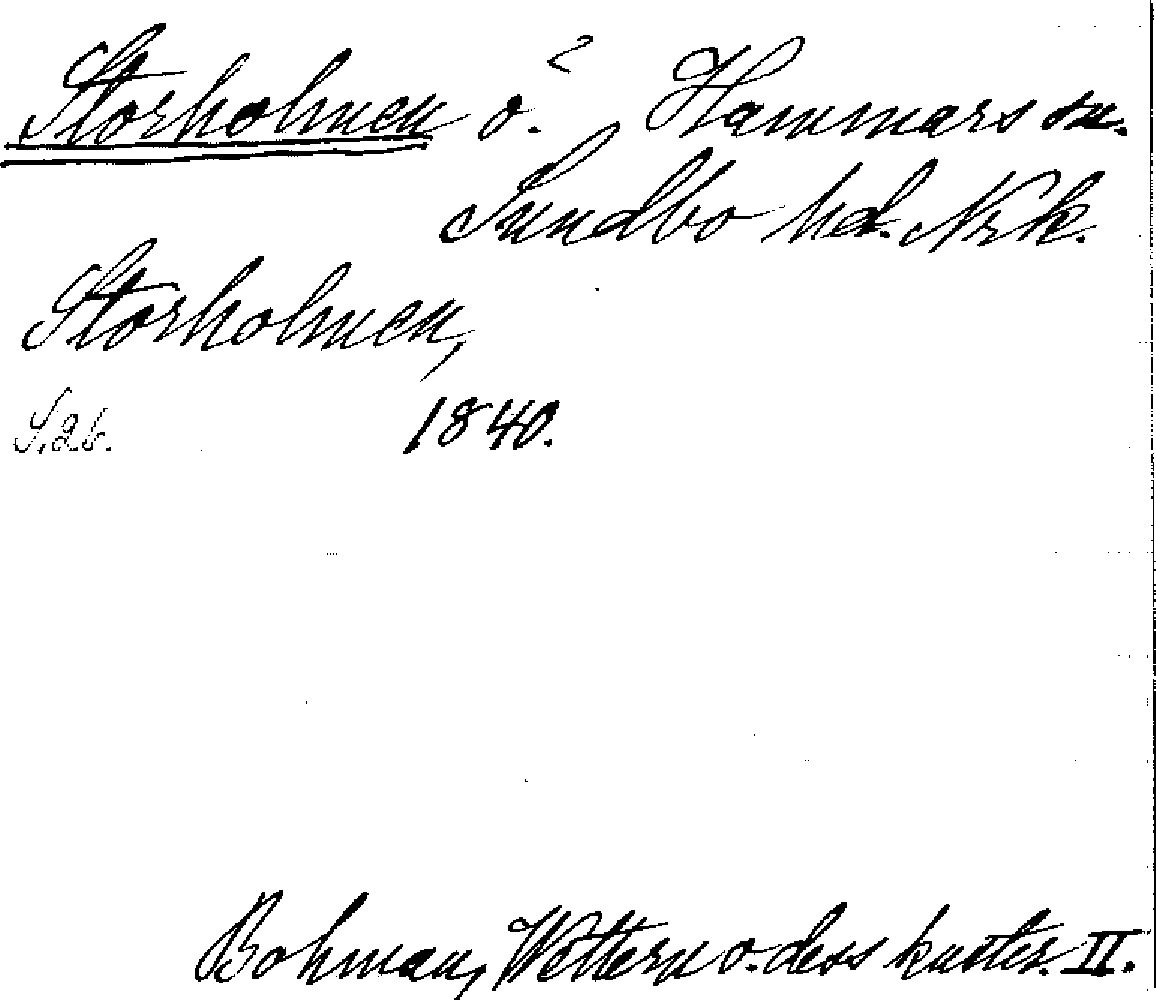 Storholmen ö. Hammars sn.
Sundbo hd. Nrk.
Storholmen,
S. 26. 1840.
Bohman, Wettern o. dess kuster. II.